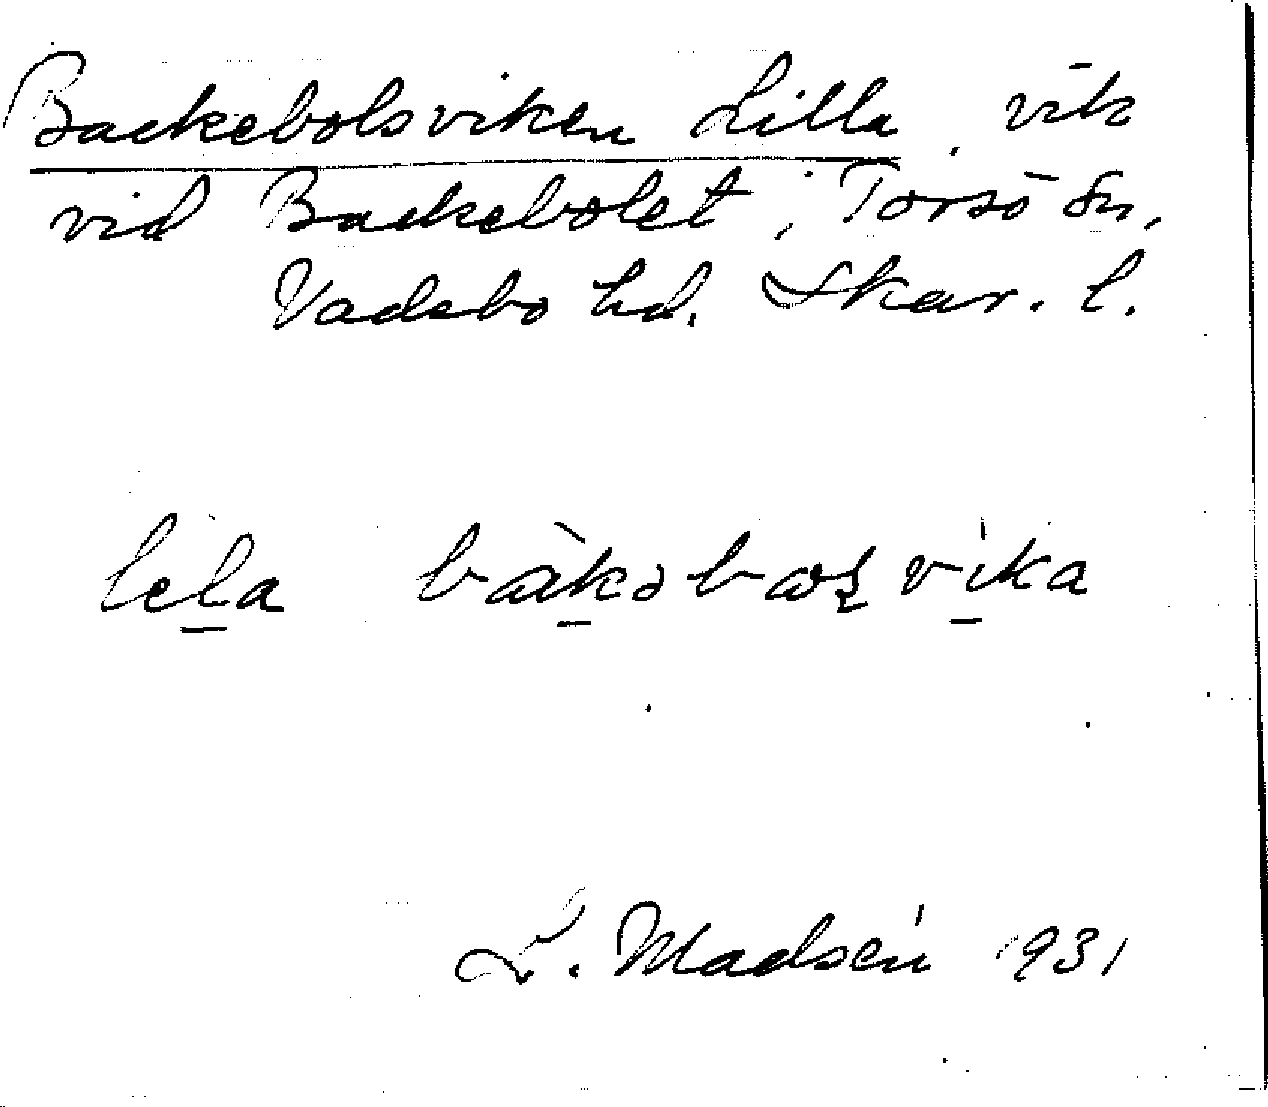 Backebolsviken Lilla, vik
vid Backebolet, Torsö sn,
Vadsbo hd. Skar. l.
lela bakəbosvika
L. Madsén 1931